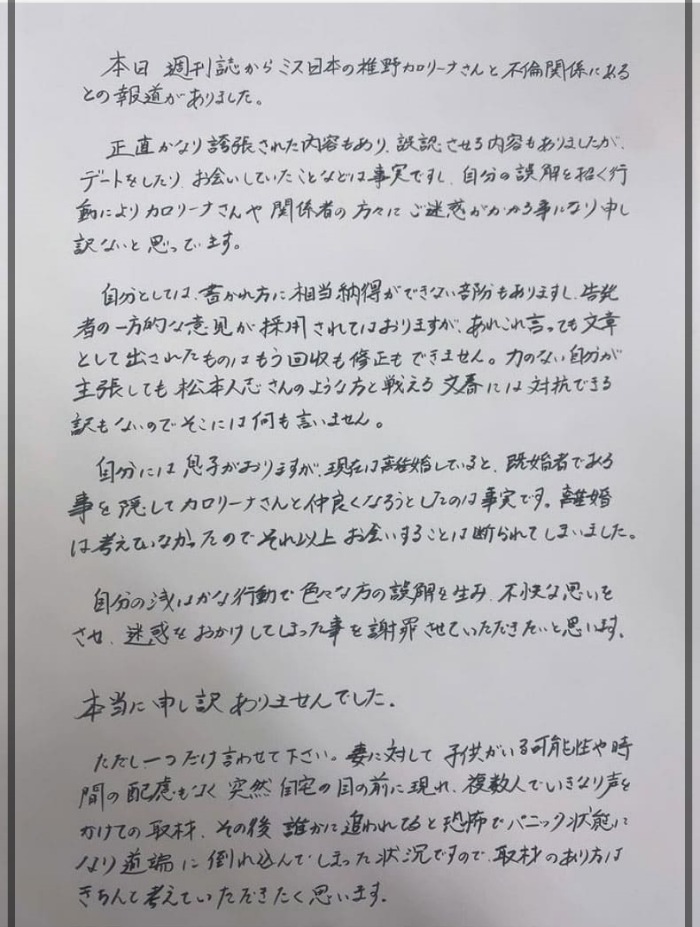 本日 週刊誌からミス日本の椎野カロリーナさんと不倫関係にある
との報道がありました。
正直かなり誇張された内容もあり、誤認させる内容もありましたが、
デートをしたり、お会いしていたことなどは事実ですし、自分の誤解を招く行
動によりカロリーナさんや関係者の方々にご迷惑がかかる事になり申し
訳ないと思っています。
自分としては、書かれ方に相当納得ができない部分もありますし、告発
者の一方的な意見が採用されてはおりますが、あれこれ言っても文章
として出されたものはもう回収も修正もできません。力のない自分が
主張しても松本人志さんのような方と戦える文春には対抗できる
訳もないのでそこには何も言いません。
自分には息子がおりますが、現在は離婚していると、既婚者である
事を隠してカロリーナさんと仲良くなろうとしたのは事実です。離婚
は考えていなかったのでそれ以上お会いすることは断られてしまいました。
自分の浅はかな行動で色々な方の誤解を生み、不快な思いを
させ、迷惑をおかけしてしまった事を謝罪させていただきたいと思います。
本当に申し訳ありませんでした。
ただし一つだけ言わせて下さい。妻に対して子供がいる可能性や時
間の配慮もなく突然自宅の目の前に現れ、複数人でいきなり声を
かけての取材、その後誰かに追われてると恐怖でパニック状態に
なり道端に倒れ込んでしまった状況ですので、取材のあり方は
きちんと考えていただきたく思います。